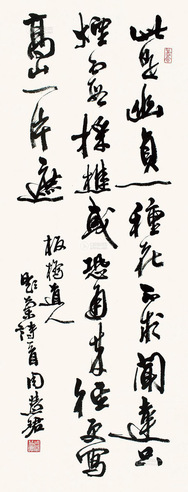 此是幽貞一種花不求聞達只
煙霞採樵或恐通來徑更寫
高山一片遮
板橋道人
詩一首周慧珺